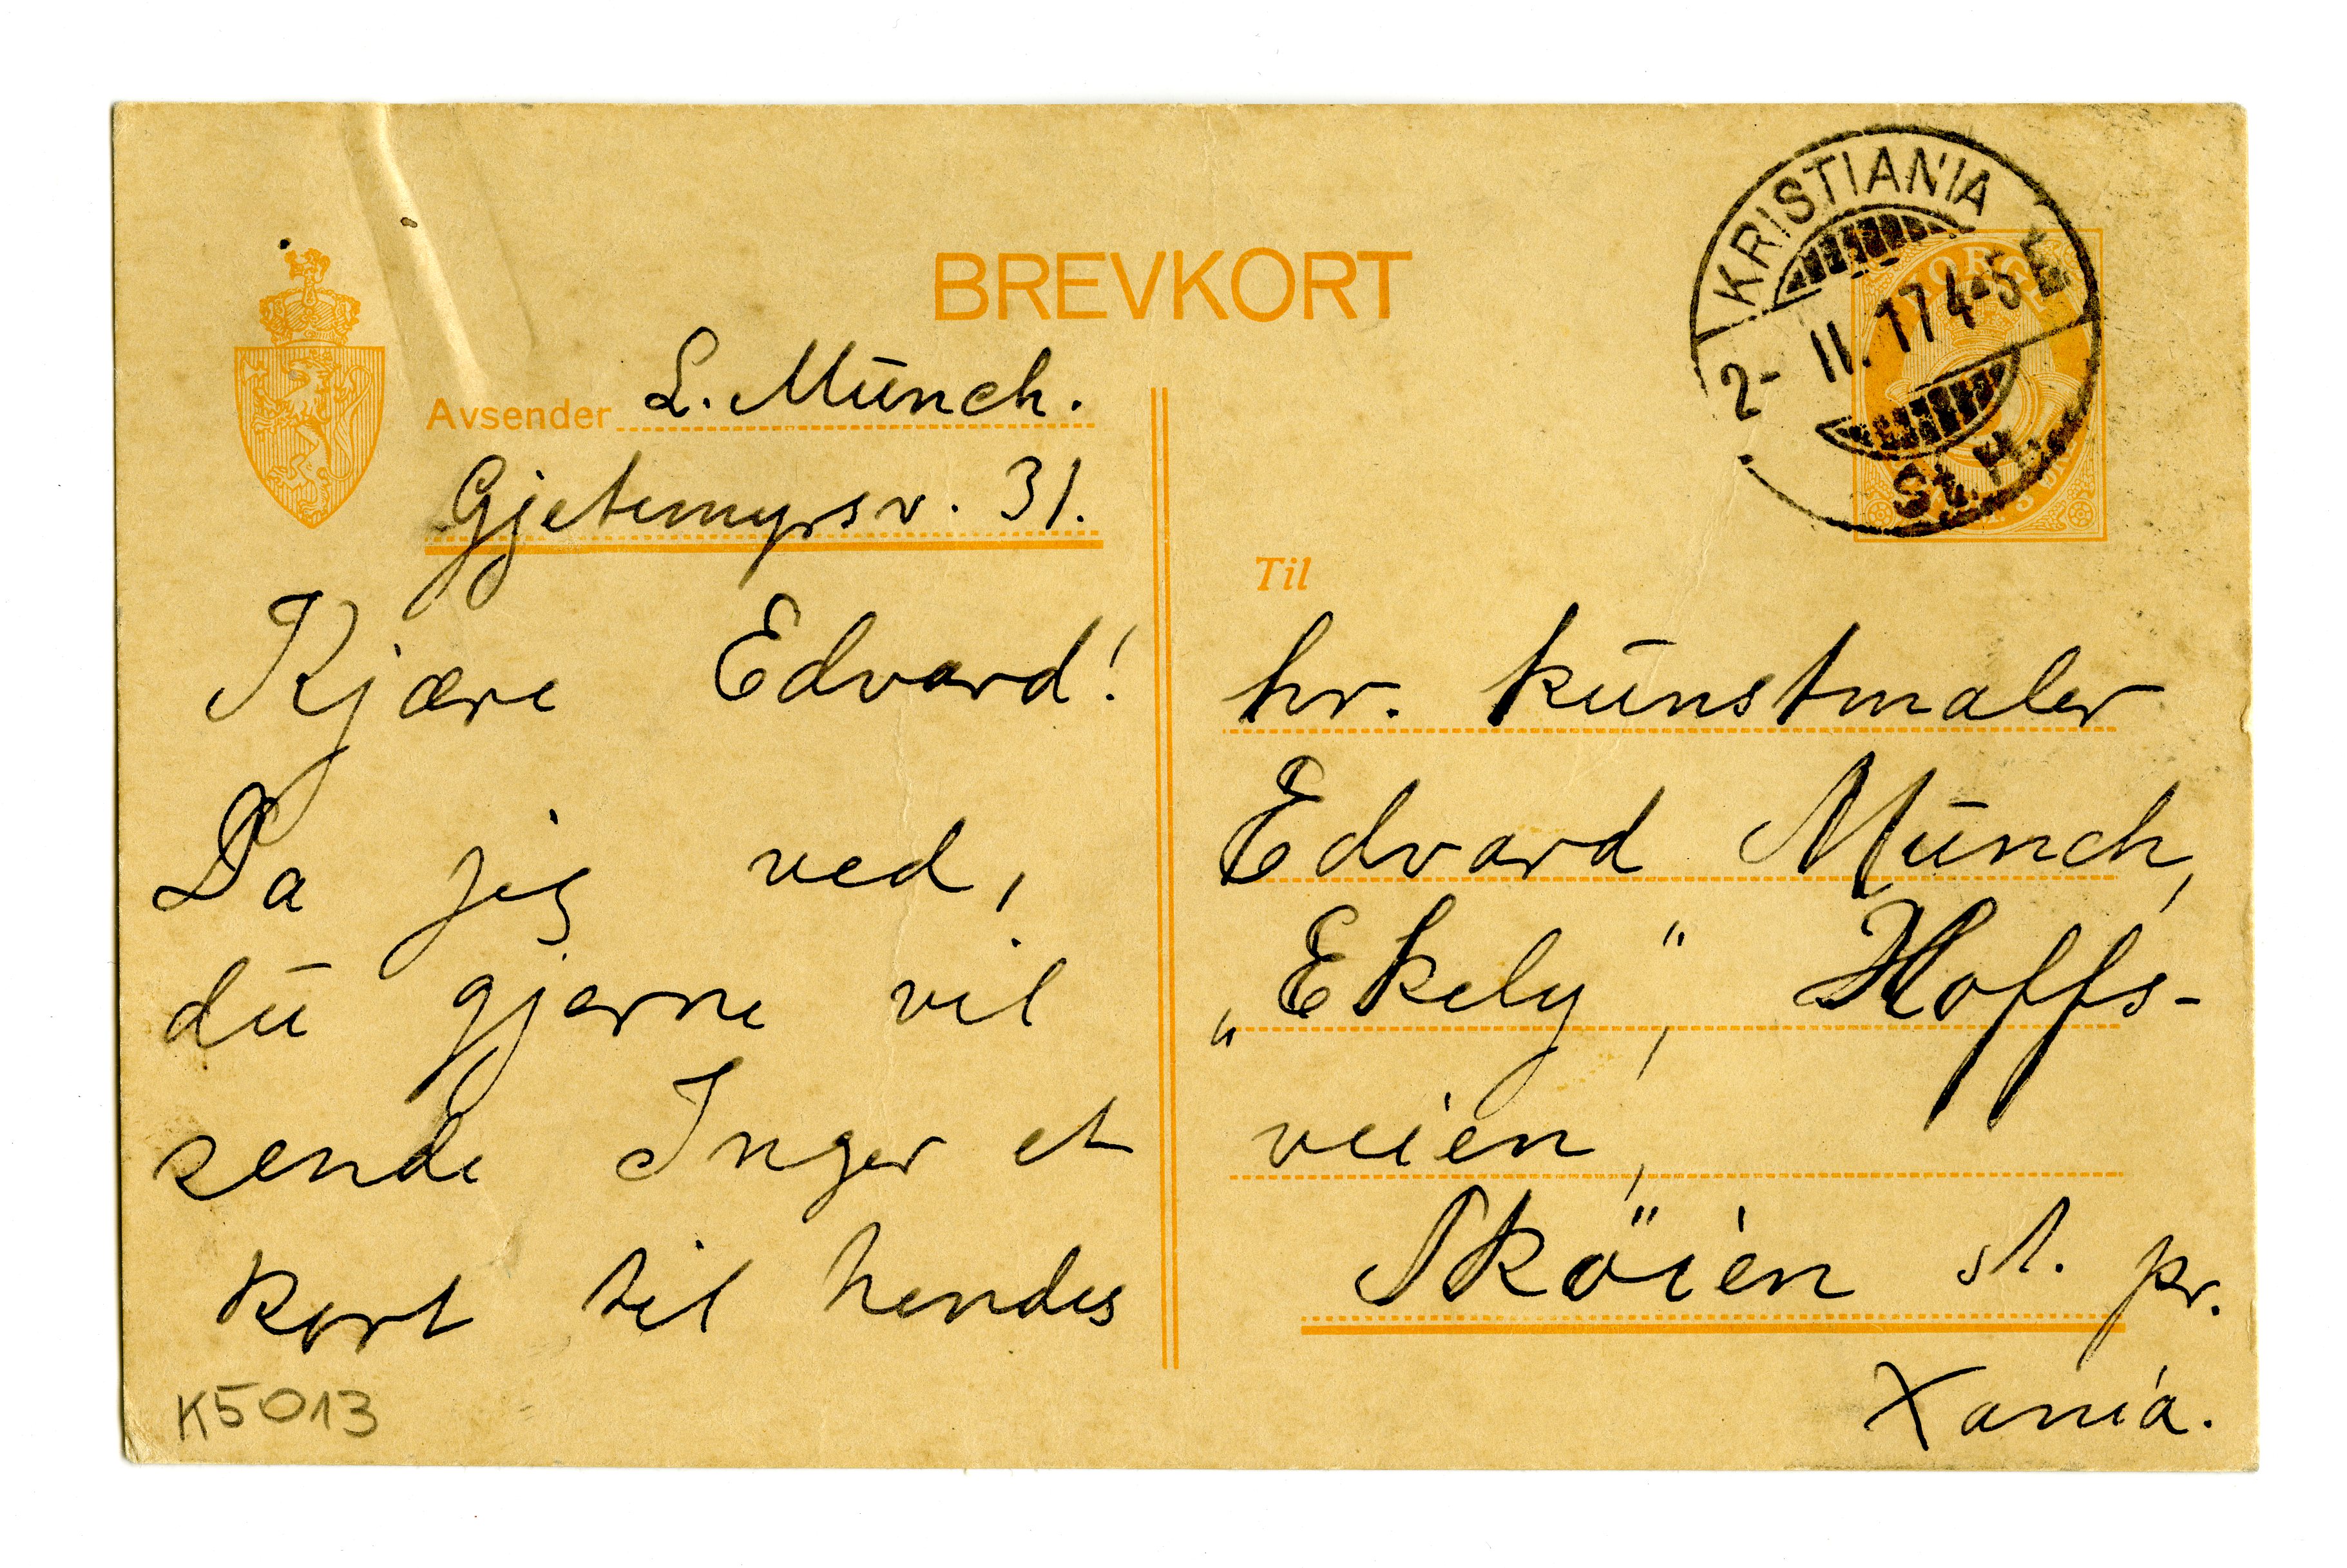 BREVKORT
KRISTIANIA
2-II.17 4-5 E
St.H.
NORGE
Avsender L. Münch.
Gjetemyrsv. 31.
Kjære Edvard!
Da jeg ved,
du gjerne vil
sende Inger et
kort til hendes
K5013
Til
hr. kunstmaler
Edvard Münch,
„Ekely“, Hoffs-
veien,
Sköien st. pr.
Xania.